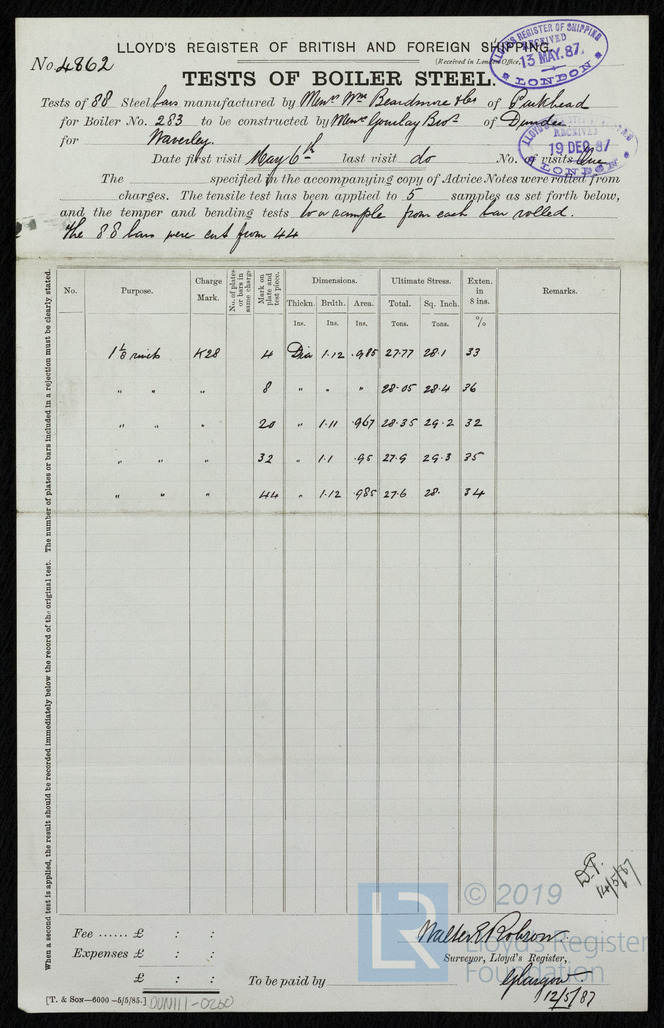 LLOYD'S REGISTER OF BRITISH AND FOREIGN SHIPPING.
No. 4862
(Received in London Office,
LLOYD'S REGISTER OF SHIPPING RECEIVED 13 MAY. 87. LONDON
TESTS OF BOILER STEEL.
Tests of 88 Steel bars manufactured by Messrs Wm Beardmore & Co of Parkhead
for Boiler No. 283 to be constructed by Messrs Gourlay Bros of Dundee
RECEIVED 19 DEC. 87 LONDON
for Waverley.
Date first visit May 6th last visit do No. of visits One
The specified in the accompanying copy of Advice Notes were rolled from
charges. The tensile test has been applied to 5 samples as set forth below,
and the temper and bending tests to a sample from each bar rolled.
The 88 bars were cut from 44
When a second test is applied, the result should be recorded immediately below the record of the original test. The number of plates or bars included in a rejection must be clearly stated.
No. Purpose. Charge Mark. No. of plates or bars in same charge Mark on plate and test piece. Dimensions. Ultimate Stress. Exten. in 8 ins. Remarks.
Thickn. Brdth. Area. Total. Sq. Inch.
Ins. Ins. Ins. Tons. Tons. %
1 1/8 rivets K28 4 Dia 1.12 .985 27.77 28.1 33
" " " 8 " " " 28.05 28.4 36
" " " 20 " 1.11 .967 28.35 29.2 32
" " " 32 " 1.1 .95 27.9 29.3 35
" " " 44 " 1.12 .985 27.6 28. 34
14/5/87
© 2019
LR
Lloyd's Register
Foundation
Fee ...... £ : :
Walter E Robson.
Expenses £ : :
Surveyor, Lloyd's Register,
£ : :
To be paid by
Glasgow
12/5/87
[T. & SON—6000 -5/5/85.] DUN111-0260